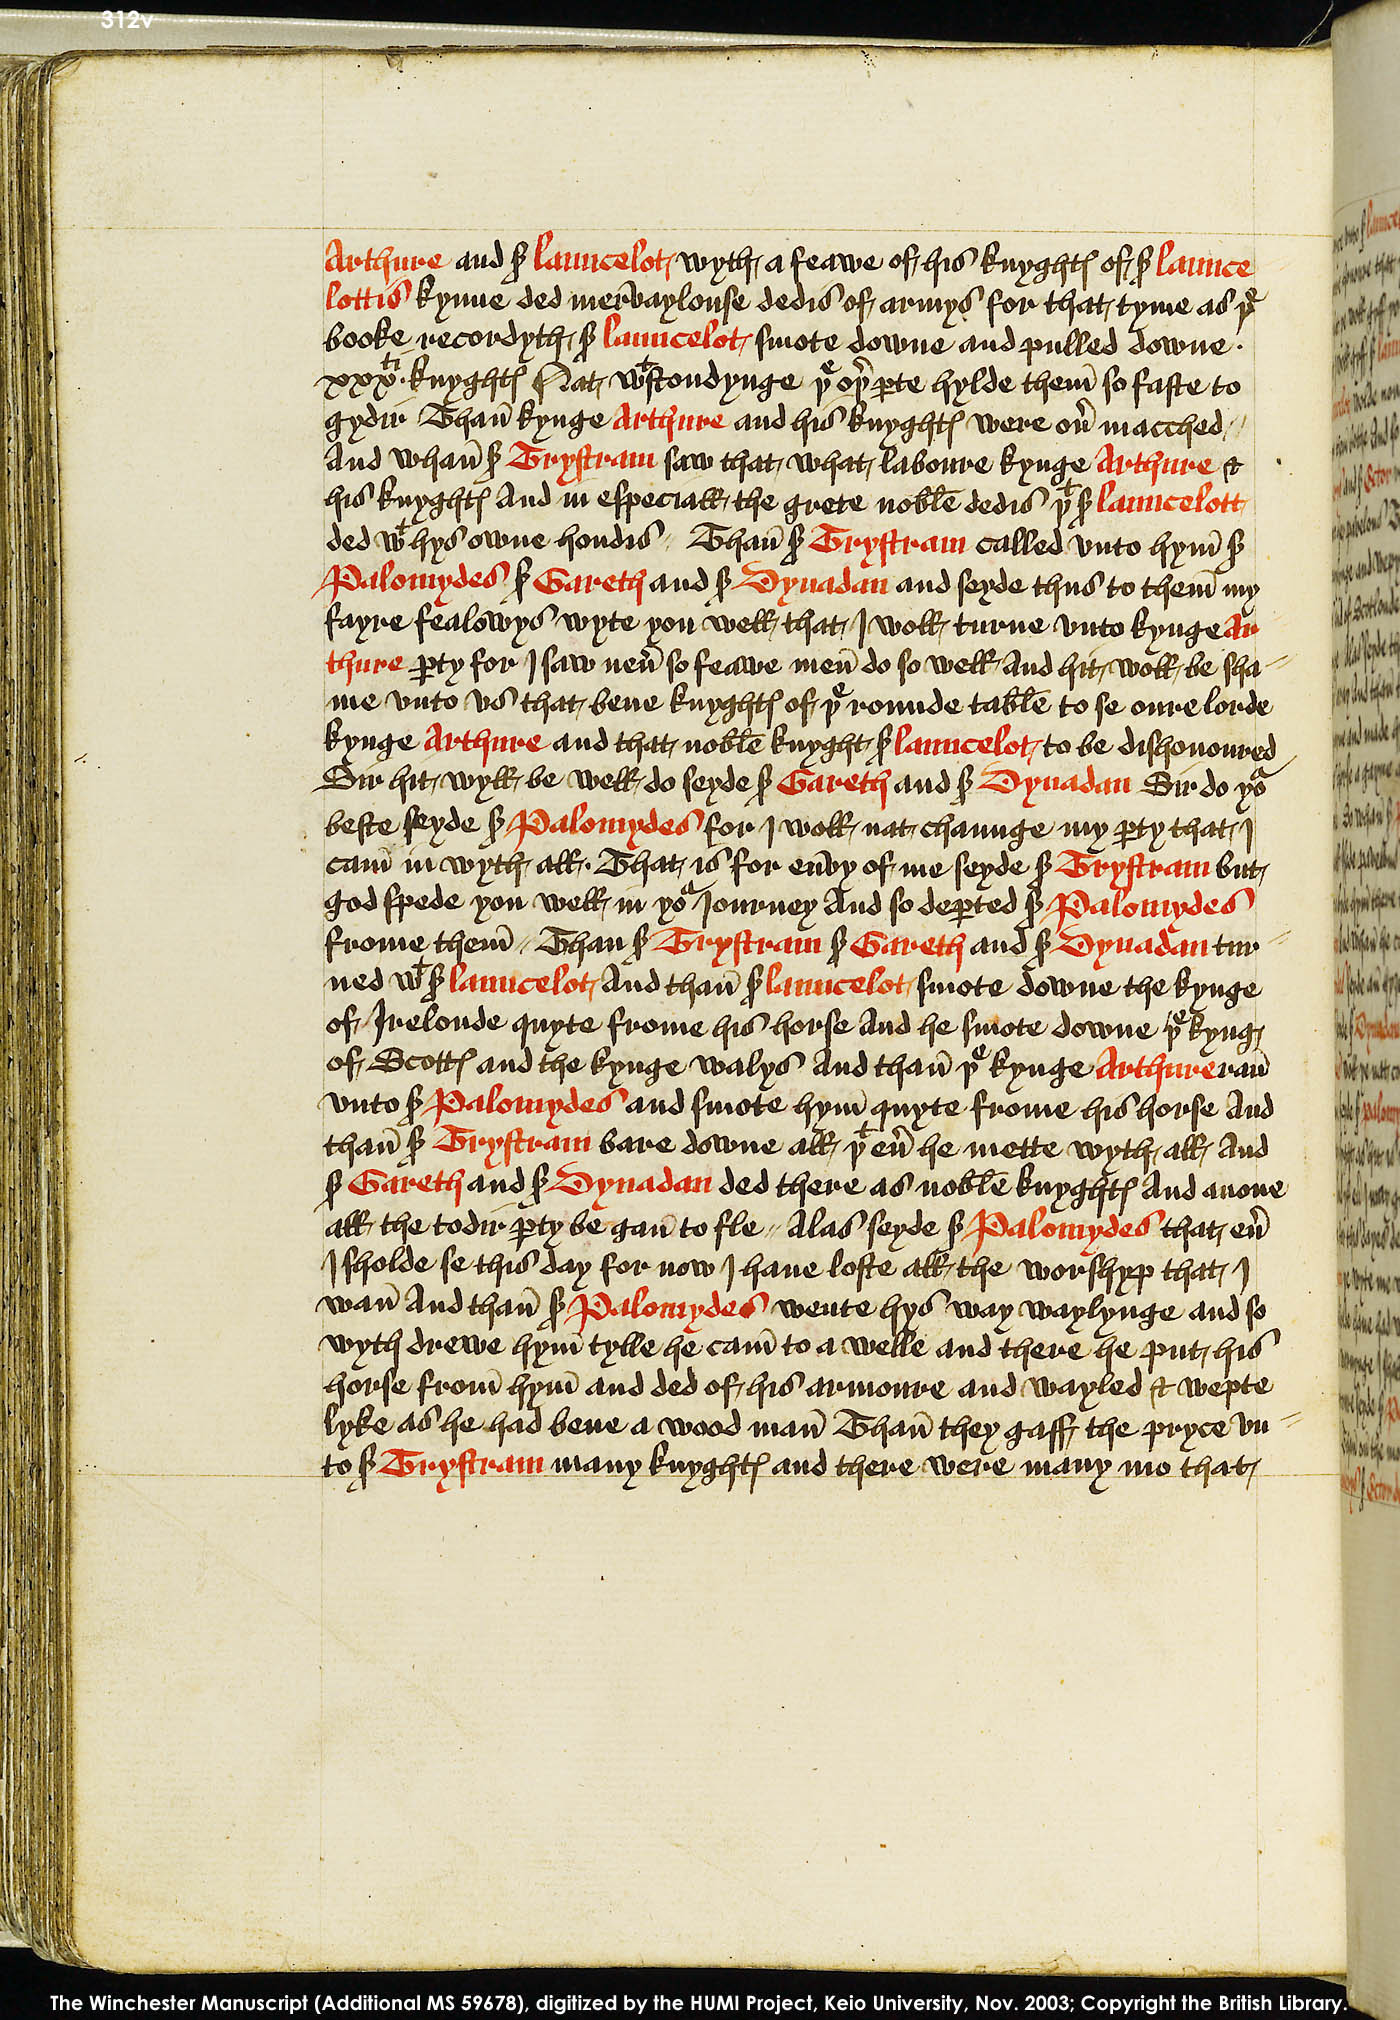 312v
Arthure and sꝛ launcelot wyth a feawe of his knyghtꝭ of sꝛ launce
lottis kynne ded mervaylouse dedis of armys for that tyme as þͤ
booke recordyth sꝛ launcelot smote downe and pulled downe ·
xxxᵗⁱ· knyghtꝭ Nat wᵗstondynge þͤ oþ̉ ꝑte hylde them̄ so faste to
gydir Than̄ kynge Arthure and his knyghtꝭ were oủ macched //
And whan̄ sꝛ Trystram saw that what laboure kynge Arthure &
his knyghtꝭ And in especiall the grete noble dedis þᵗ sꝛ launcelott
ded wᵗ hys owne hondis // Than̄ sꝛ Trystram called vnto hym̄ sꝛ
Palomydes sꝛ Gareth and sꝛ Dynadan and seyde thus to them̄ my
fayre fealowys wyte you well that I woll turne vnto kynge Ar
thure ꝑty for I saw neủ so feawe men̄ do so well And hit woll be sha //
me vnto vs that bene knyghtꝭ of þͤ rounde table to se oure lorde
kynge Arthure and that noble knyght sꝛ launcelot to be dishonoured
Sir hit wyll be well do seyde sꝛ Gareth and sꝛ Dynadan Sir do yoᵘʳ
beste seyde sꝛ Palomydes for I woll nat chaunge my ꝑty that I
cam̄ in wyth all · That is for envy of me seyde sꝛ Trystram but
god spede you well in yoᵘʳ Iourney And so deꝑted sꝛ Palomydes
frome them̄ // Than sꝛ Trystram sꝛ Gareth and sꝛ Dynadan tur //
ned wᵗ sꝛ launcelot And than̄ sꝛ launcelot smote downe the kynge
of Irelonde quyte frome his horse And he smote downe þͤ kyng
of Scottꝭ and the kynge walys And than̄ þͤ kynge Arthure ran̄
vnto sꝛ Palomydes and smote hym̄ quyte frome his horse And
than̄ sꝛ Trystram bare downe all þᵗ eủ he mette wyth all And
sꝛ Gareth and sꝛ Dynadan ded there as noble knyghtꝭ And anone
all the todir ꝑty be gan̄ to fle // Alas seyde sꝛ Palomydes that eủ
I sholde se this day for now I haue loste all the worshyp that I
wan̄ And than̄ sꝛ Palomydes wente hys way waylynge and so
wyth drewe hym̄ tylle he cam̄ to a welle and there he put his
horse from̄ hym̄ and ded of his armoure and wayled & wepte
lyke as he had bene a wood man̄ Than̄ they gaff the pryce vn //
to sꝛ Trystram many knyghtꝭ and there were many mo that
The Winchester Manuscript (Additional MS 59678), digitized by the HUMI Project, Keio University, Nov. 2003; Copyright the British Library.